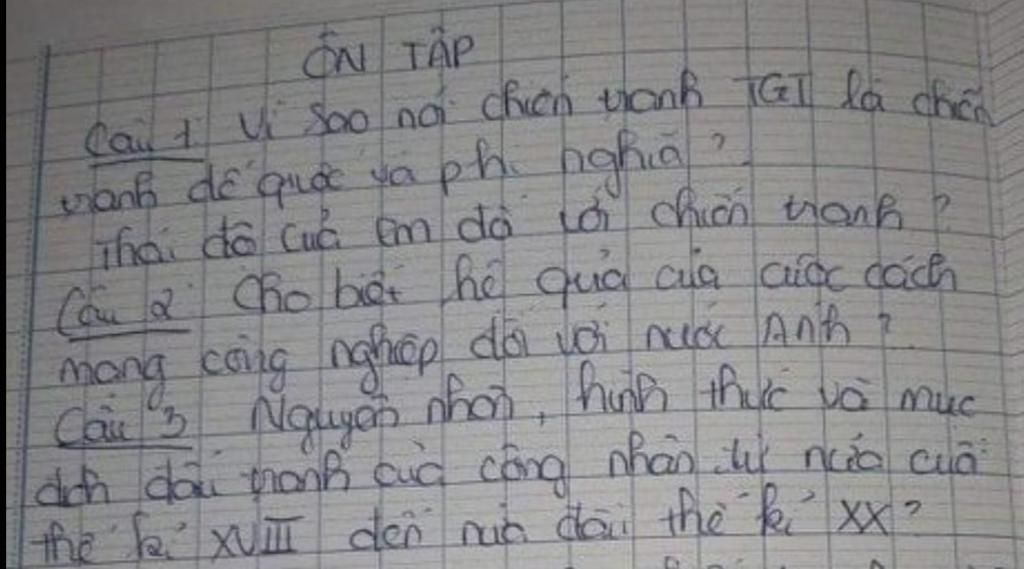 ÔN TẬP
Câu 1: Vì sao nói chiến tranh TGI là chiến
tranh đế quốc và phi nghĩa?
Thái độ của em đối với chiến tranh?
Câu 2: Cho biết hệ quả của cuộc cách
mạng công nghiệp đối với nước Anh?
Câu 3 Nguyên nhân, hình thức và mục
đích đấu tranh của công nhân từ nước cuối
thế kỉ XVIII đến nửa đầu thế kỉ XX?